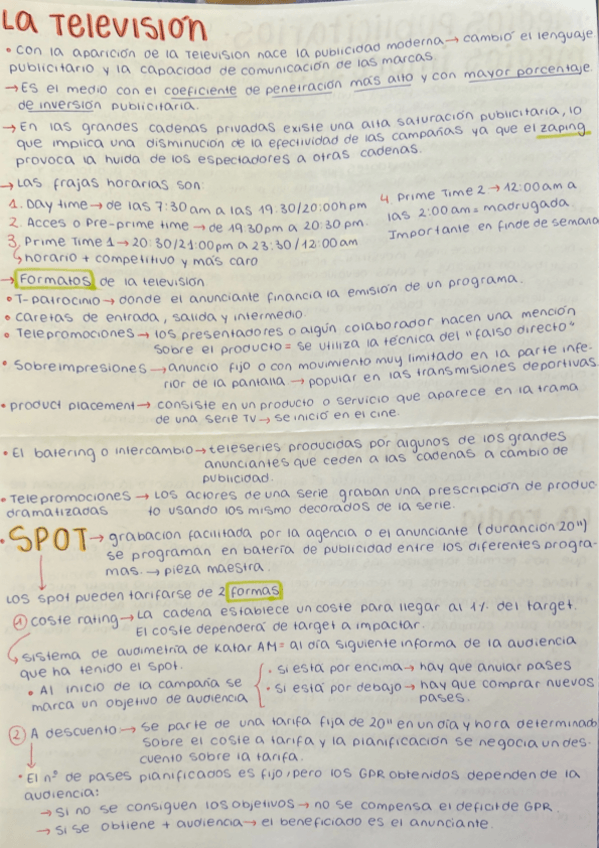 LA TELEVISIÓN
• Con la aparición de la television nace la publicidad moderna → cambió el lenguaje
publicitario y la capacidad de comunicación de las marcas.
→ Es el medio con el coeficiente de penetración más alto y con mayor porcentaje
de inversión publicitaria.
→ En las grandes cadenas privadas existe una alta saturación publicitaria, lo
que implica una disminución de la efectividad de las campañas ya que el zaping
provoca la huida de los espectadores a otras cadenas.
→ Las frajas horarias son:
1. Day time → de las 7:30am a las 19:30/20:00h pm
2. Acces o Pre-prime time → de 19:30pm a 20:30 pm.
3. Prime Time 1 → 20:30/21:00pm a 23:30/12:00am
↳ horario + competitivo y más caro
4. Prime Time 2 → 12:00am a
las 2:00am = madrugada.
Importante en finde de semana
→ Formatos de la televisión.
• T-patrocinio → donde el anunciante financia la emisión de un programa.
• Caretas de entrada, salida y intermedio.
• Telepromociones → los presentadores o algún colaborador hacen una mención
sobre el producto = se utiliza la técnica del "falso directo"
• Sobreimpresiones → anuncio fijo o con movimiento muy limitado en la parte infe-
rior de la pantalla → popular en las transmisiones deportivas.
• product placement → consiste en un producto o servicio que aparece en la trama
de una serie TV → se inició en el cine.
• El batering o intercambio → teleseries producidas por algunos de los grandes
anunciantes que ceden a las cadenas a cambio de
publicidad.
• Telepromociones → Los actores de una serie graban una prescripción de produc
dramatizadas to usando los mismo decorados de la serie.
• SPOT → grabación facilitada por la agencia o el anunciante (duranción 20")
se programan en batería de publicidad entre los diferentes progra-
mas. → pieza maestra.
Los spot pueden tarifarse de 2 formas
① coste rating → La cadena establece un coste para llegar al 1% del target.
El coste dependerá de target a impactar.
↳ sistema de audimetría de Katar AM = al día siguiente informa de la audiencia
que ha tenido el spot.
• Al inicio de la campaña se
marca un objetivo de audiencia
• si está por encima → hay que anular pases
• si está por debajo → hay que comprar nuevos
pases.
② A descuento → se parte de una tarifa fija de 20" en un día y hora determinado
sobre el coste a tarifa y la planificación se negocia un des-
cuento sobre la tarifa.
• El nº de pases planificados es fijo, pero los GPR obtenidos dependen de la
audiencia:
→ Si no se consiguen los objetivos → no se compensa el deficit de GPR.
→ Si se obtiene + audiencia → el beneficiado es el anunciante.